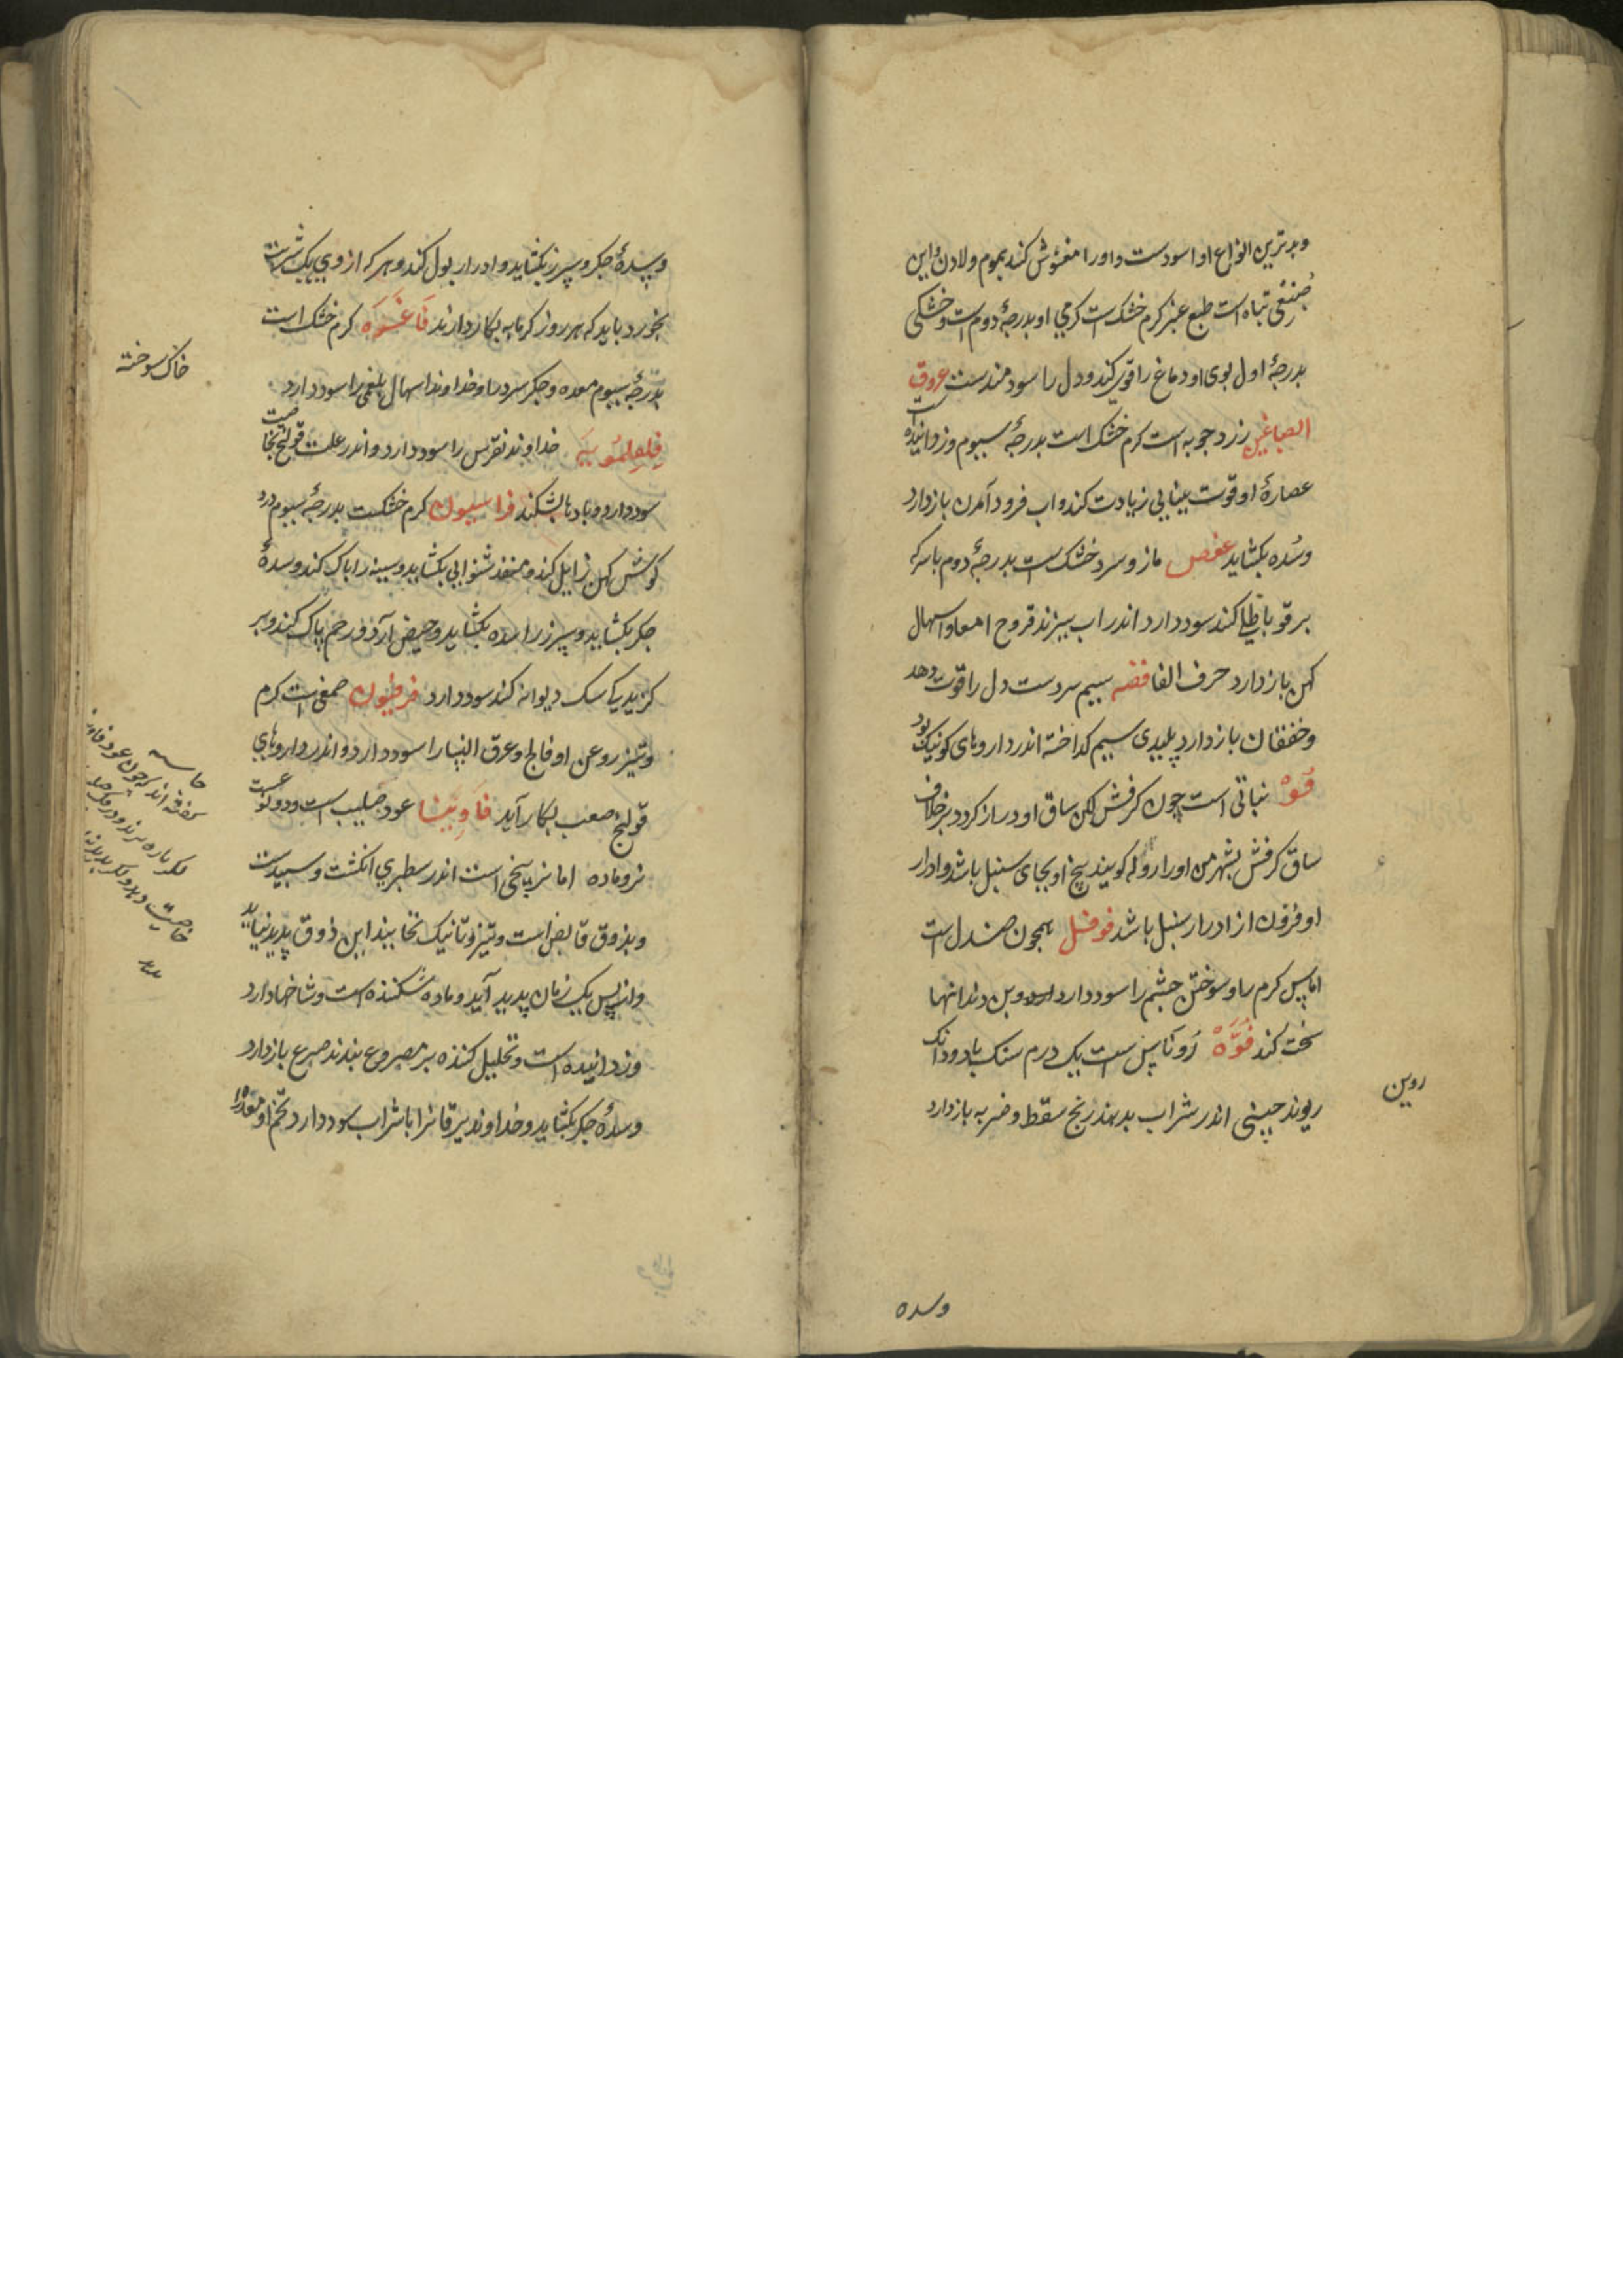 وبدترین انواع او اسودست و او را مغشوش کنند بموم ولادن و این
صنفی تباه است طبع عنبر کرم خشک است کرمی او بدرجۀ دوم است و خشکی
بدرجۀ اول بوی او دماغ را قوی کند و دل را سودمندست عروق
الصباغین زرد جوبه است کرم خشک است بدرجۀ سیوم و زداینده است
عصارۀ او قوت بینایی زیادت کند و اب فرود آمدن بازدارد
وسُده بکشاید عفص مازو سرد خشک است بدرجۀ دوم با سرکه
بر قوبا طلی کنند سود دارد اندر اب بپزند قروح امعا و اسهال
کهن بازدارد حرف الفا فضه سیم سردست دل را قوت دهد
وخفقان بازدارد پلیدی سیم کداخته اندر داروهای کر نیک بود
فُوْ نباتی است چون کرفش لکن ساق او دراز کردد بر خلاف
ساق کرفش بشهر من او را روله کویند بیخ او بجای سنبل باشد و ادرار
او فزون از ادرار سنبل باشد فوفل همچون صندل است
اماس کرم را و سوختن چشم را سود دارد وبن دندانها
سخت کند فُوَّهْ رُوناس است یک درم سنک با دو دانک
ریوند چینی اندر شراب بدهند رنج سقطه و ضربه بازدارد
روین
وسده
وسدۀ جکر و سپرز بکشاید و ادرار بول کند و هر که از وی یک شربت
بخورد باید که هر روز کرمابه بکار دارند فَاغَرَه کرم خشک است
بدرجۀ سیوم معده و جکر سرد را و خداوند اسهال بلغمی را سود دارد
خداوند نقرس را سود دارد و اندر علت قولنج بخاصیت
سود دارد و بادها بشکند فراسیون کرم خشکست بدرجۀ سیوم درد
کوش کهن زایل کند و منفذ شنوایی بکشاید و سینه را پاک کند و سدۀ
جکر بکشاید و سپرز را سده بکشاید و حیض آرد و رحم پاک کند و بر
کزیدیکا سک دیوانه کنند سود دارد فرفیون صمغیست کرم
وتیز روغن او فالج و عرق النسا را سود دارد و اندر داروهای
قولنج صعب بکار آید فَاوِینَا عود صلیب است و دو کونست
نر و ماده اما نر بیخی است اندر سطبری انکشت و سپیدست
وبذوق قابض است و تیز و تا نیک نخایند این ذوق پدید نیاید
وان پس یک زمان پدید آید و ماده شکننده است و شاخها دارد
وزداینده است و تحلیل کننده بر مصروع بندند صرع بازدارد
وسدۀ جکر بکشاید و خداوند یرقان را با شراب سود دارد تخم او معده را
خاک سوخته
کفته اند که چون عود فاوینا
خاصیت